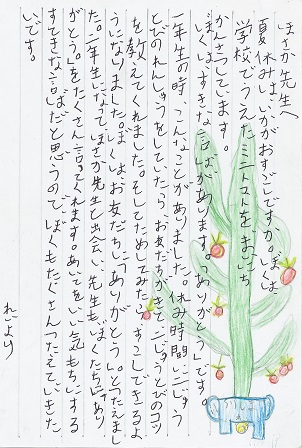 ほさか先生へ
夏休みは、いかがおすごしですか。ぼくは、
学校でうえたミニトマトを、まいにち
かんさつしています。
ぼくはすきな言ばがあります。「ありがとう」です。
一年生の時、こんなことがありました。休み時間に二じゅう
とびのれんしゅうをしていたら、お友だちがきて二じゅうとびのコツ
を教えてくれました。そしてためしてみたら、すこしできるよ
うになりました。ぼくはお友だちに「ありがとう。」とつたえまし
た。二年生になってほさか先生と出会い、先生もぼくたちに「あり
がとう。」をたくさん言ってくれます。あいてをいい気もちにする
すてきな言ばだと思うので、ぼくもたくさんつたえていきた
いです。
れいより